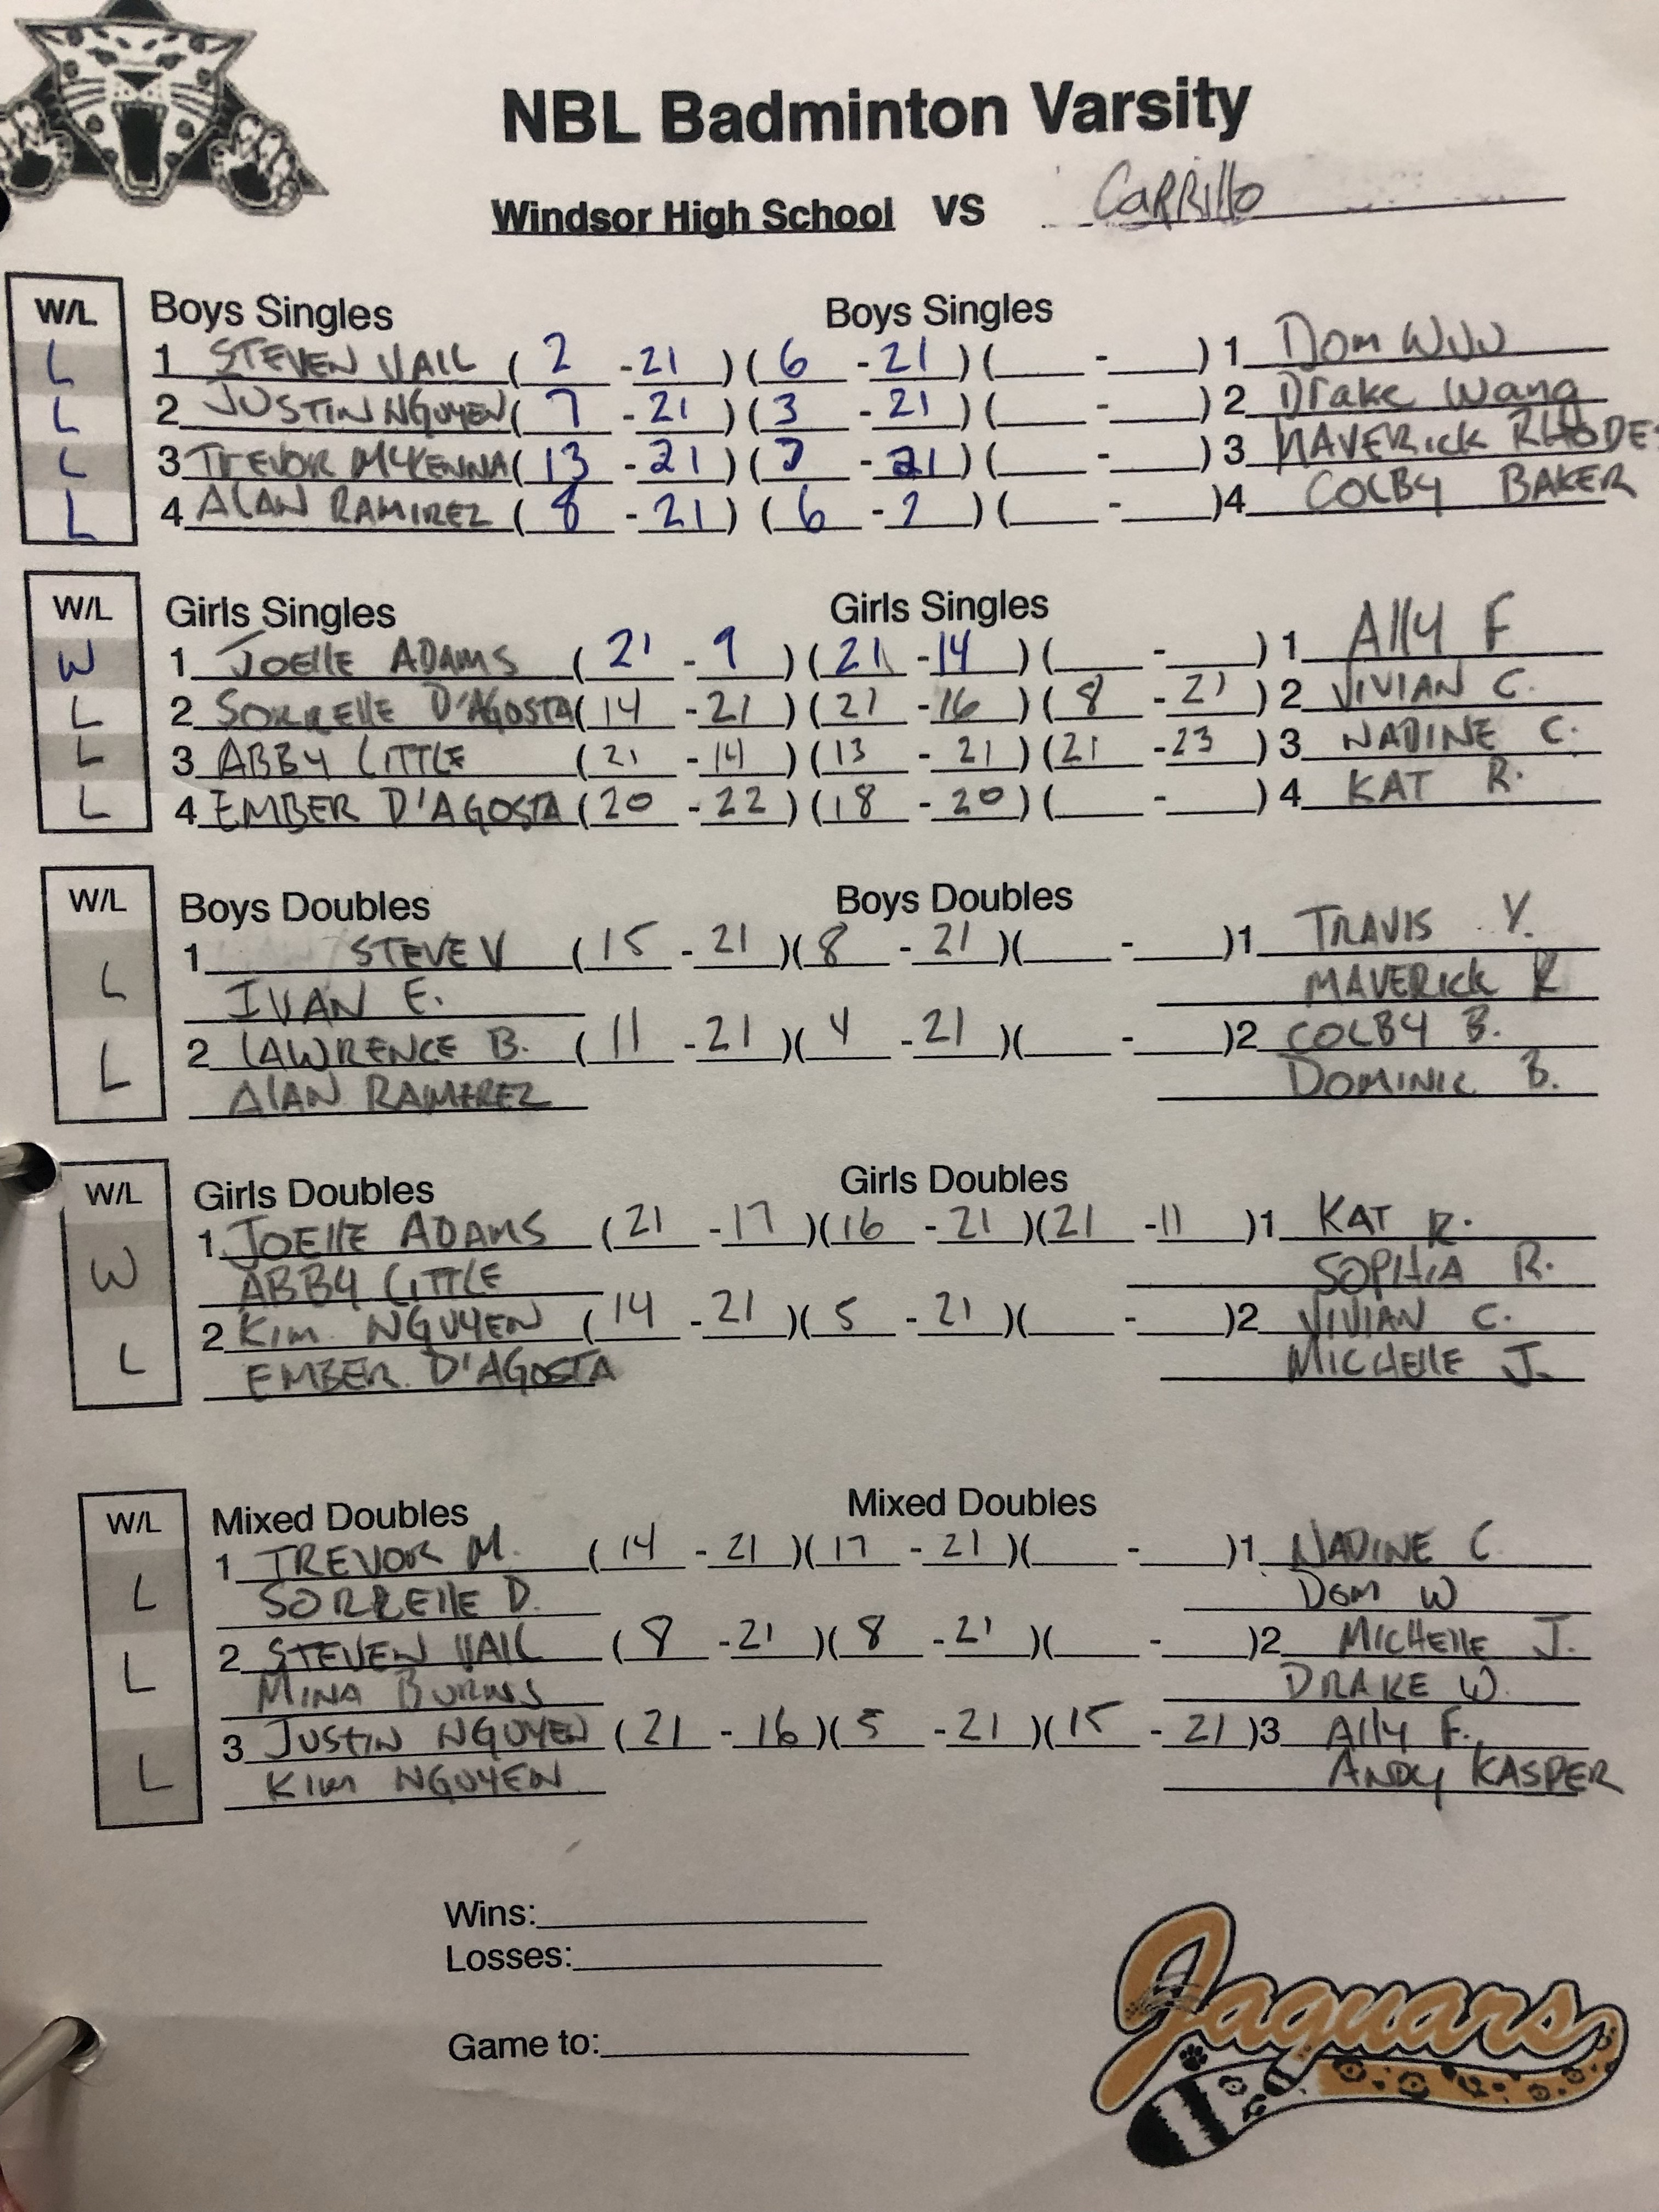 NBL Badminton Varsity
Windsor High School VS Carrillo
W/L Boys Singles Boys Singles
L 1 STEVEN VAIL ( 2 - 21 ) ( 6 - 21 ) ( - ) 1 Dom
L 2 JUSTIN NGUYEN ( 7 - 21 ) ( 3 - 21 ) ( - ) 2 Drake Wang
L 3 TREVOR MCKENNA ( 13 - 21 ) ( - 21 ) ( - ) 3 MAVERICK RHODES
L 4 ALAN RAMIREZ ( 8 - 21 ) ( 6 - 2 ) ( - ) 4 COLBY BAKER
W/L Girls Singles Girls Singles
W 1 JOELLE ADAMS ( 21 - 9 ) ( 21 - 14 ) ( - ) 1 Ally F
L 2 SORRELLE D'AGOSTA ( 14 - 21 ) ( 21 - 16 ) ( 8 - 21 ) 2 VIVIAN C.
L 3 ABBY LITTLE ( 21 - 14 ) ( 13 - 21 ) ( 21 - 23 ) 3 NADINE C.
L 4 EMBER D'AGOSTA ( 20 - 22 ) ( 18 - 20 ) ( - ) 4 KAT R.
W/L Boys Doubles Boys Doubles
L 1 STEVE V ( 15 - 21 ) ( 8 - 21 ) ( - ) 1 TRAVIS Y.
IVAN E. MAVERICK R
L 2 LAWRENCE B. ( 11 - 21 ) ( 4 - 21 ) ( - ) 2 COLBY B.
ALAN RAMIREZ DOMINIC B.
W/L Girls Doubles Girls Doubles
W 1 JOELLE ADAMS ( 21 - 17 ) ( 16 - 21 ) ( 21 - 11 ) 1 KAT R.
ABBY LITTLE SOPHIA R.
L 2 KIM NGUYEN ( 14 - 21 ) ( 5 - 21 ) ( - ) 2 VIVIAN C.
EMBER D'AGOSTA MICHELLE J.
W/L Mixed Doubles Mixed Doubles
L 1 TREVOR M. ( 14 - 21 ) ( 17 - 21 ) ( - ) 1 NADINE C
SORRELLE D. DOM W
L 2 STEVEN VAIL ( 8 - 21 ) ( 8 - 21 ) ( - ) 2 MICHELLE J.
MINA BURNS DRAKE W.
L 3 JUSTIN NGUYEN ( 21 - 16 ) ( 5 - 21 ) ( 15 - 21 ) 3 Ally F.
KIM NGUYEN ANDY KASPER
Wins:
Losses:
Game to:
Jaguars